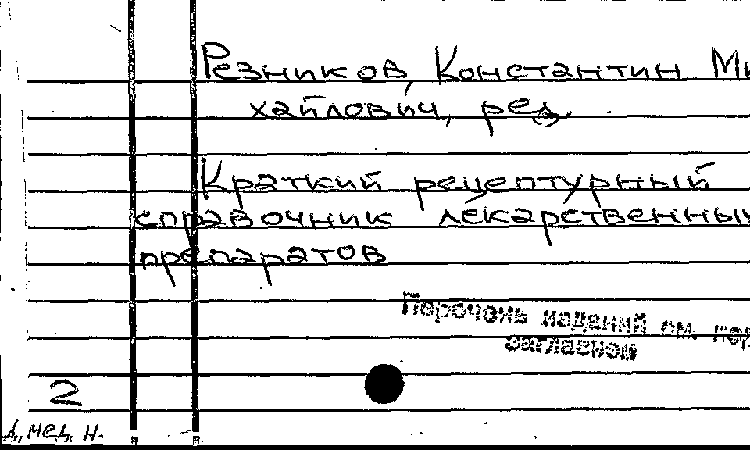 Резников, Константин Ми
хайлович, ред.
Краткий рецептурный
справочник лекарственны
препаратов
Перечень изданий см. пер
заглавной
2
д. мед. н.